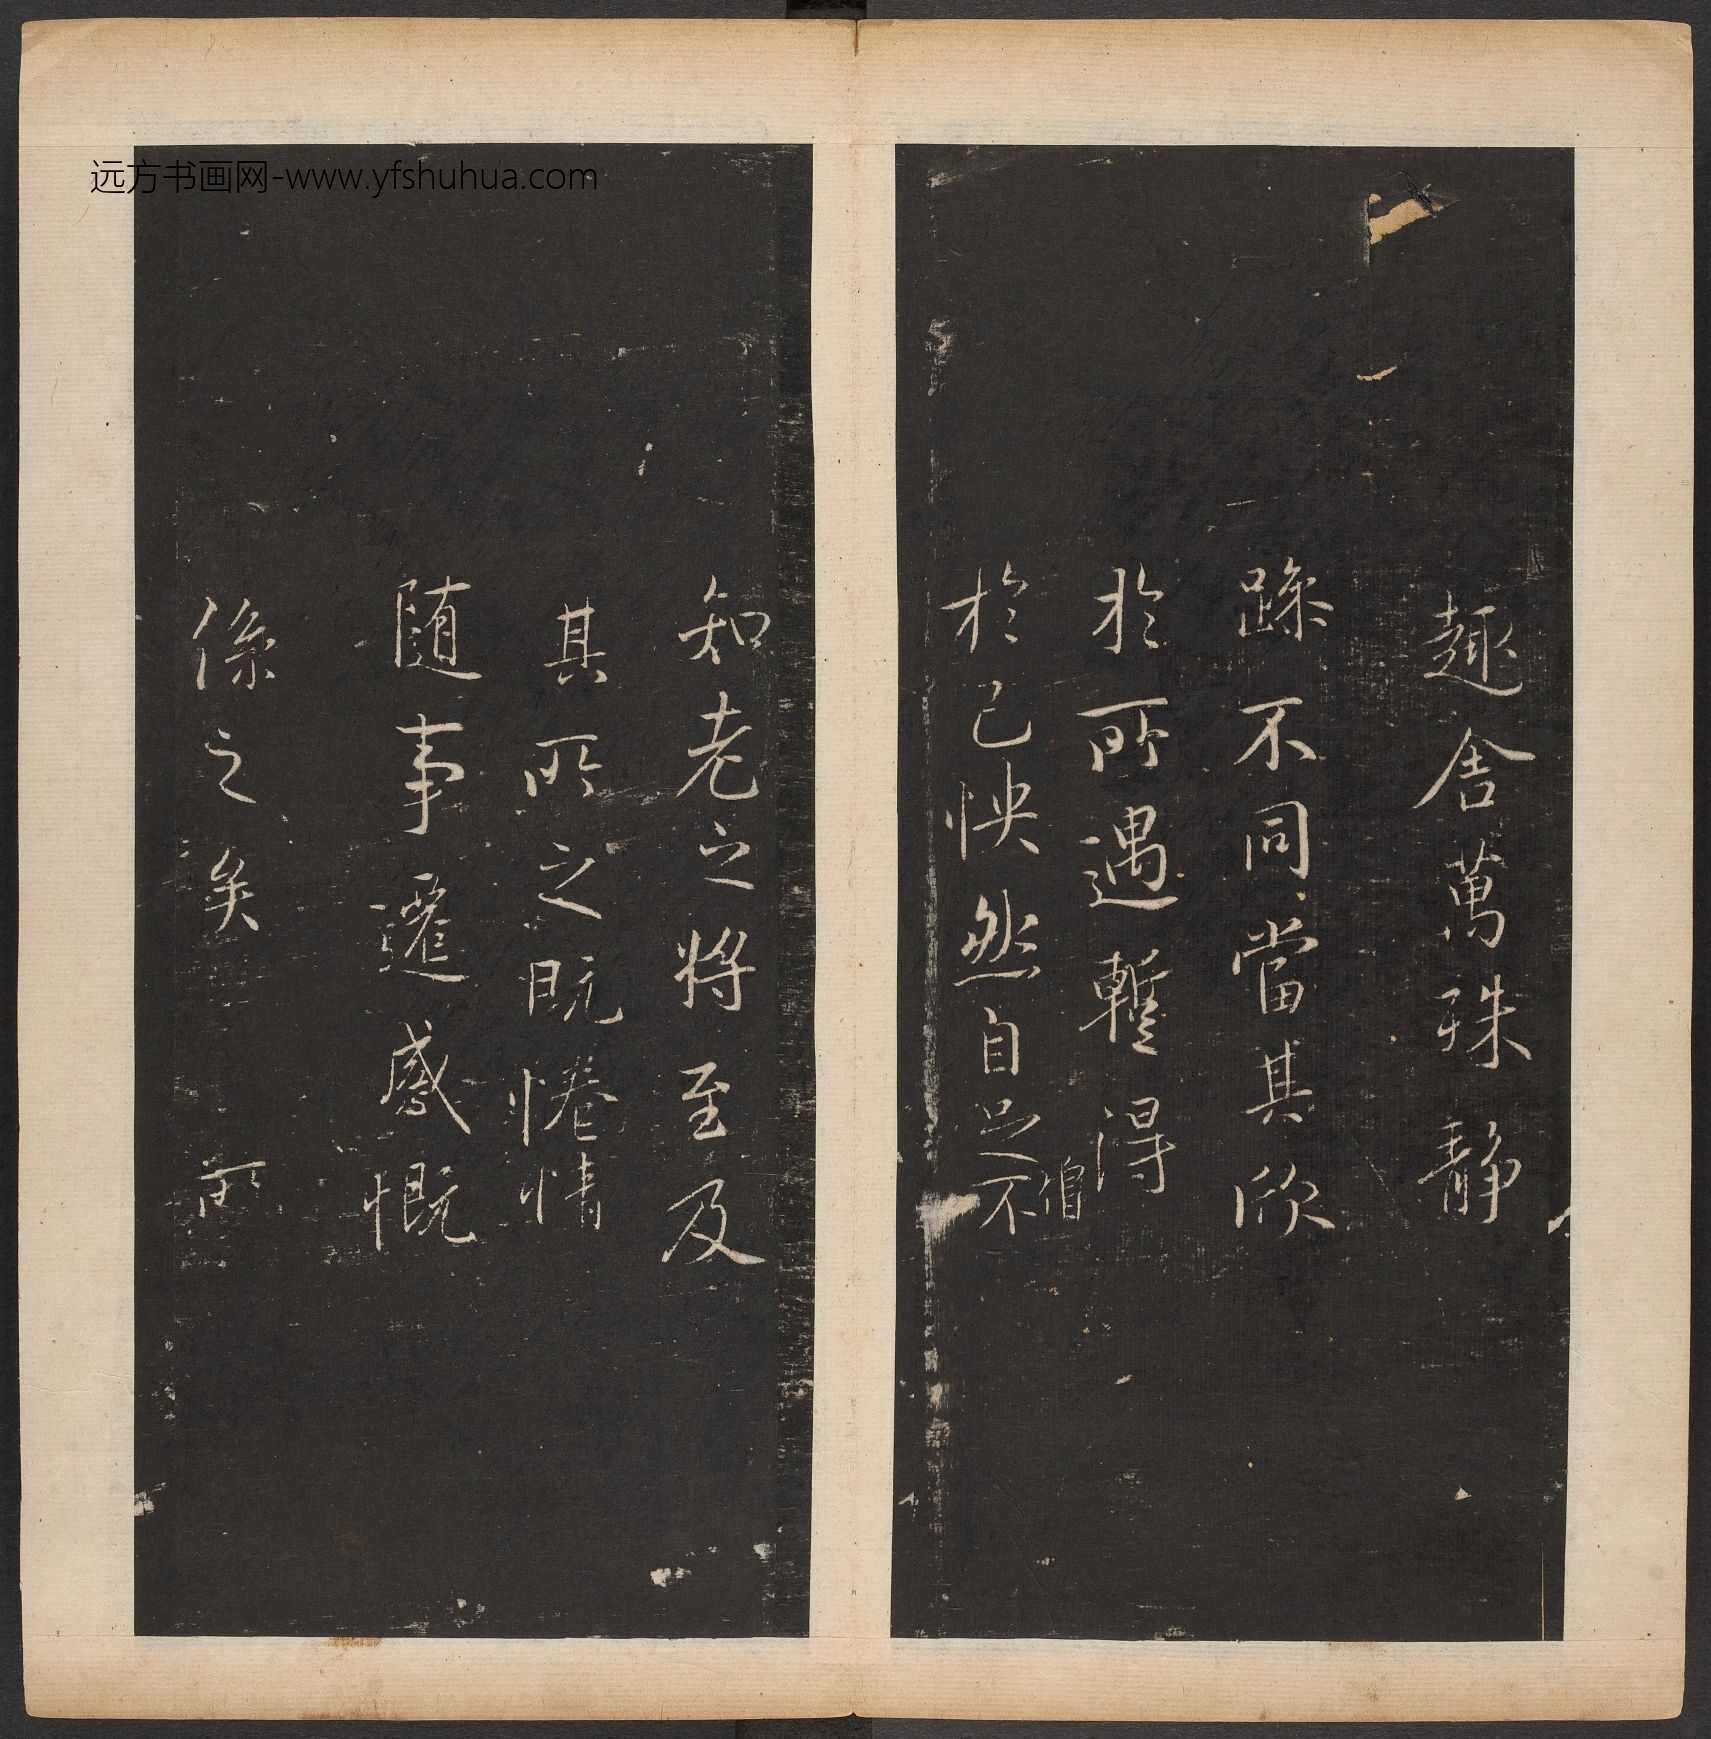 远方书画网-www.yfshuhua.com
趣舍萬殊静
躁不同當其欣
於所遇暫得
於己怏然自足不
僧
知老之將至及
其所之既惓情
随事遷感慨
係之矣 所